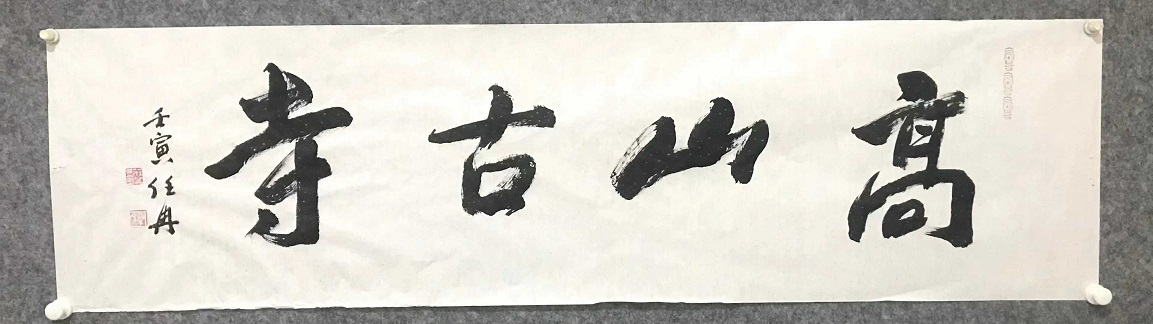 高山古寺
壬寅任冉